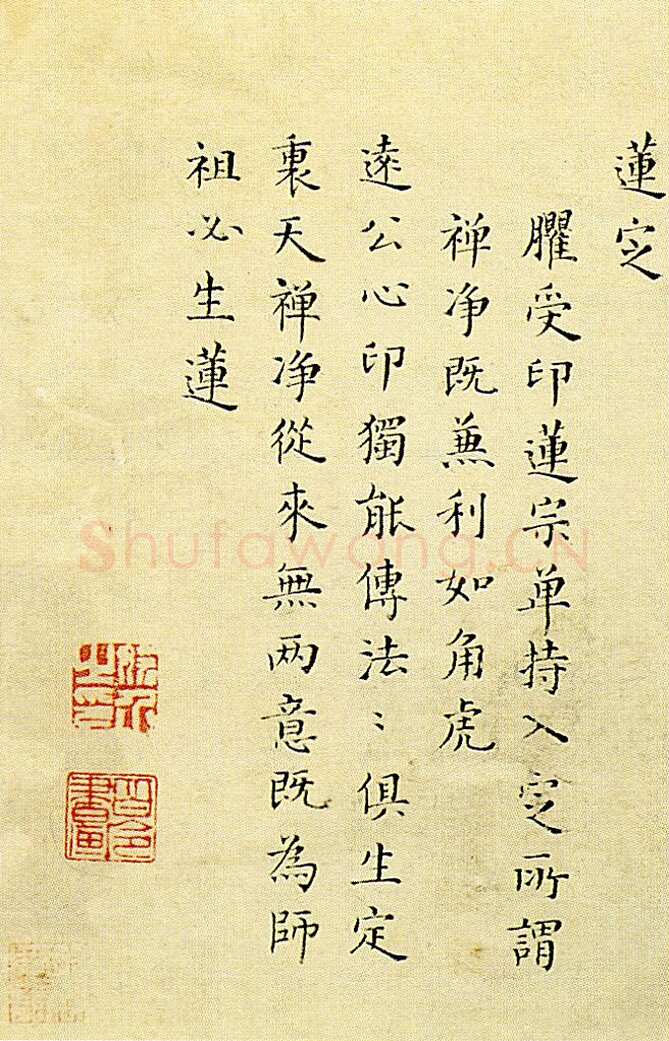 蓮定
臞受印蓮宗單持入定所謂
禅净既兼利如角虎
遠公心印獨能傳法〻俱生定
裏天禅净從來無两意既為師
祖必生蓮
Shufawang.CN